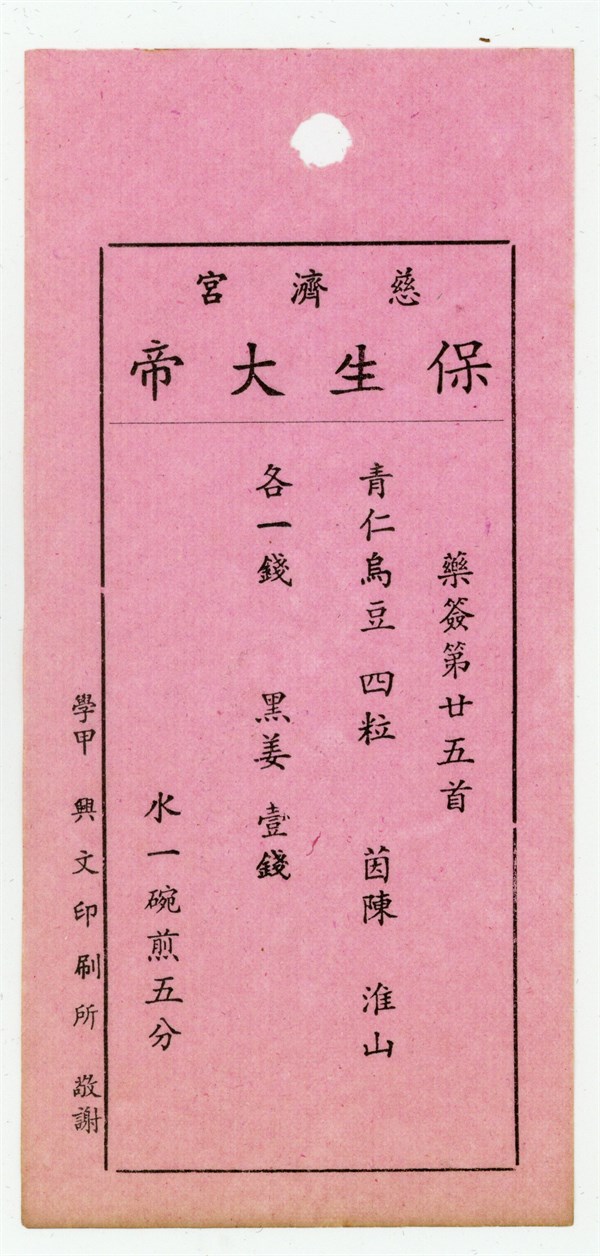 慈濟宮
保生大帝
藥簽第廿五首
青仁烏豆 四粒 茵陳 淮山
各一錢 黑姜 壹錢
水一碗煎五分
學甲 興文印刷所 敬謝